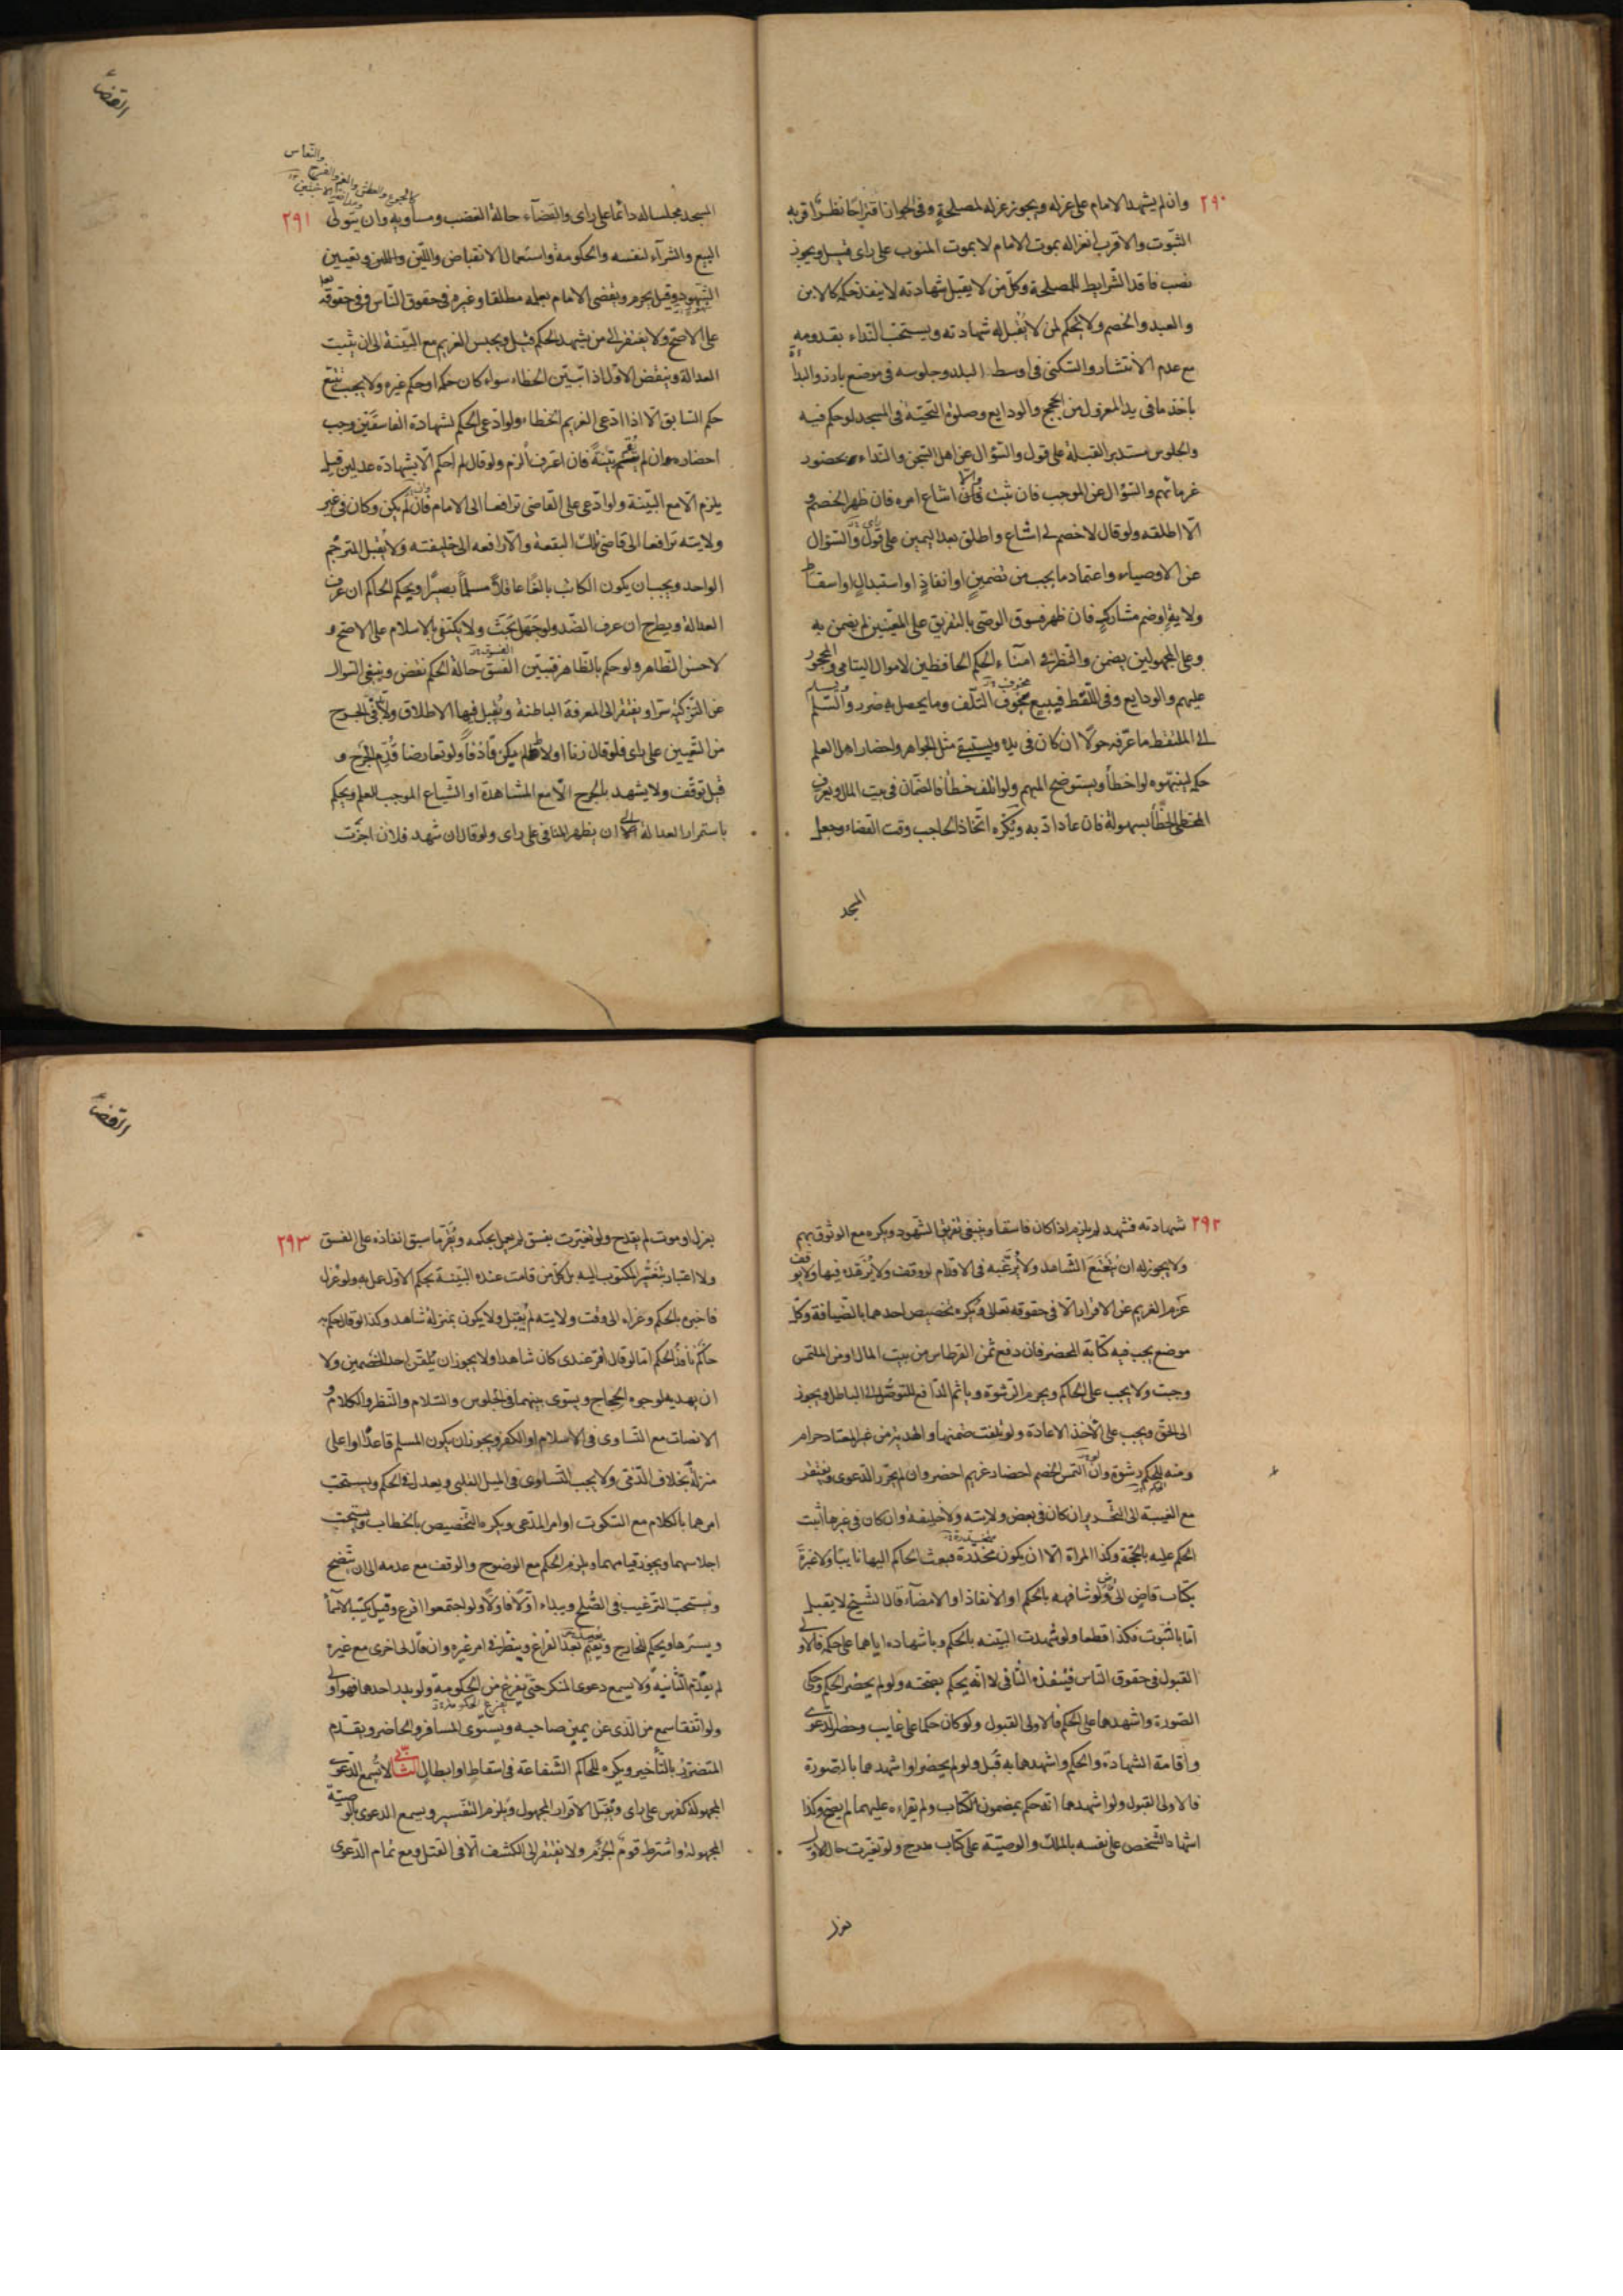 ٢٩٠
وان لم يشهد الامام على عزله ويجوز عزله لمصلحة وفى الجواز اقتراحا نظر اقربه
الثبوت والاقرب انعزاله بموت الامام لا بموت المنوب على راى قيل ويجوز
نصب فاقد الشرايط للمصلحة وكل من لا يقبل شهادته لا ينفذ حكمه كالابن
والعبد والخصم ولا يحكم لمن لا يقبل له شهادته ويستحب النداء بقدومه
مع عدم الانتشار والسكنى فى اوسط البلد وجلوسه فى موضع بارز والبداة
باخذ ما فى يد المعزول من الحجج والودايع وصلوة التحية فى المسجد لو حكم فيه
والجلوس مستدبر القبلة على قول والسؤال عن اهل السجن والنداء بحضور
غرمائهم والسؤال عن الموجب فان ثبت والا اشاع امره فان ظهر الخصم و
الا اطلقه ولو قال لا خصم لى اشاع واطلق بعد اليمين على قول والسؤال
عن الاوصياء واعتماد ما يجب من تضمين او انفاذ او استبدال او اسقاط
ولاية او ضم مشارك فان ظهر فسوق الوصى بالتفريق على المعينين لم يضمن به
وعلى المجهولين يضمن والنظر فى امناء الحكم الحافظين لاموال اليتامى والمحجور
عليهم والودايع وفى اللقط فيبيع مخوف التلف وما يحصل به ضرر ويسلم
الى الملتقط ما عرفه حولا ان كان فى يده ويستبقى مثل الجواهر واحضار اهل العلم
حكمه لينبهوه لو اخطأ ويستوضح المبهم ولو اتلف خطأ فالضمان فى بيت المال ويعرف
المخطى الخطأ بسهولة فان عاد ادبه ويكره اتخاذ الحاجب وقت القضاء وجعل
المسجد
القضاء
والنعاس
كالجوع والعطش والغم والفرح
ومدافعة الاخبثين
٢٩١
المسجد مجلسا له دائما على راى والقضآء حالة الغضب ومساويه وان يتولى
البيع والشرآء لنفسه والحكومة واستعمال الانقباض واللين وتعيين
الشهود وقيل يحرم ويقضى الامام بعلمه مطلقا وغيره فى حقوق الناس وفى حقوقه تعالى
على الاصح ولا يفتقر الى من يشهد الحكم قيل ويحبس الغريم مع البينة الى ان يثبت
العدالة وينقض الاول اذا تبين الخطاء سواء كان حكمه او حكم غيره ولا يجب تتبع
حكم السابق الا اذا ادعى الغريم الخطاء ولو ادعى الحكم لشهادة الفاسقين وجب
احضاره وان لم يقم بينة فان اعترف الزم ولو قال لم احكم الا بشهادة عدلين قيل
يلزم الا مع البينة ولو ادعى على القاضى ترافعا الى الامام فان لم يكن وكان فى غير
ولايته ترافعا الى قاضى تلك البقعة والا رافعه الى خليفته ولا يقبل المترجم
الواحد ويجب ان يكون الكاتب بالغا عاقلا مسلما بصيرا ويحكم الحاكم ان عرف
العدالة ويطرح ان عرف الضد ولو جهل بحث ولا يكتفى بالاسلام على الاصح و
لا حسن الظاهر ولو حكم بالظاهر فتبين الفسق حالة الحكم نقض وينبغى السوال
عن التزكية سرا ويفتقر الى المعرفة الباطنة ويقبل فيها الاطلاق ولا بد فى الجرح
من التعيين على راى فلو قال زنا او لاط لم يكن قاذفا ولو تعارضا قدم الجرح و
قيل توقف ولا يشهد بالجرح الا مع المشاهدة او الشياع الموجب للعلم ويحكم
باستمرار العدالة الى ان يظهر المنافى على راى ولو قال ان شهد فلان اجزت
٢٩٢
شهادته فشهد لم يلزم اذا كان فاسقا وينبغى تفريق الشهود ويكره مع الوثوق بهم
ولا يجوز له ان يتعتع الشاهد ولا يرغبه فى الاقدام لو وقف ولا يزهده فيها ولا يوقف
عزم الغريم عن الاقرار الا فى حقوقه تعالى ويكره تخصيص احدهما بالضيافة وكل
موضع يجب فيه كتابة المحضر فان دفع ثمن القرطاس من بيت المال او من الملتمس
وجبت ولا يجب على الحاكم ويحرم الرشوة وياثم الدافع للتوصل الى الباطل ويجوز
الى الحق ويجب على الآخذ الاعادة ولو تلفت ضمنها والهدية من غير المعتاد حرام
ومنه للحكم رشوة وان التمس الخصم احضار غريمه احضر وان لم يحرر الدعوى ويفتقر
مع الغيبة الى التحرير ان كان فى بعض ولايته ولا خليفة وان كان فى غيرها اثبت
الحكم عليه بالحجة وكذا المراة الا ان يكون مخدرة فيبعث الحاكم اليها نايبا ولا عبرة
بكتاب قاض الى قاض ولو شافهه بالحكم او الانفاذ او الامضآء قال الشيخ لا يقبل
اما بالثبوت فكذا قطعا ولو شهدت البينة بالحكم وباشهاده اياهما على حكمه فالاولى
القبول فى حقوق الناس فينفذه الثانى لا انه يحكم بصحته ولو لم يحضر الحكم وحكى
الصورة واشهدهما على الحكم فالاولى القبول ولو كان حكما على غايب وحضر الدعوى
واقامة الشهادة والحكم واشهدهما به قبل ولو لم يحضرا واشهدهما بالصورة
فالاولى القبول ولو اشهدهما انه حكم بمضمون الكتاب ولم يقراه عليهما لم يصح وكذا
اشهاد الشخص على نفسه بالملك والوصية على كتاب مدرج ولو تغيرت حال الاول
بعزل
القضاء
٢٩٣
بعزل او موت لم يقدح ولو تغيرت بفسق لم يعمل بحكمه ويقر ما سبق انفاذه على الفسق
ولا اعتبار بتغير المكتوب اليه بل كل من قامت عنده البينة بحكم الاول عمل به ولو عزل
فاخبر بالحكم وعزاه الى وقت ولايته لم يقبل ولا يكون بمنزلة شاهد وكذا لو قال حكم به
حاكم نافذ الحكم اما لو قال اقر عندى كان شاهدا ولا يجوز ان يلقن احد الخصمين ولا
ان يهديه لوجوه الحجاج ويسوى بينهما فى الجلوس والسلام والنظر والكلام و
الانصات مع التساوى فى الاسلام او الكفر ويجوز ان يكون المسلم قاعدا او اعلى
منزلة بخلاف الذمى ولا يجب التساوى فى الميل القلبى ويعدل فى الحكم ويستحب
امرهما بالكلام مع السكوت او امر المدعى ويكره التخصيص بالخطاب ويستحب
اجلاسهما ويجوز قيامهما ويلزم الحكم مع الوضوح والوقف مع عدمه الى ان يتضح
ويستحب الترغيب فى الصلح ويبداء اولا فاولا ولو اجتمعوا اقرع وقيل يكتب الاسماء
ويسترها ويحكم للخارج ويقيم بعد الفراغ وينظر فى امر غيره وان عاد الى اخرى مع غيره
لم يقدم الثانية ولا يسمع دعوى المنكر حتى يفرغ من الحكومة ولو بدر احدهما فهو اولى
ولو اتفقا سمع من الذى عن يمين صاحبه ويستوى المسافر والحاضر ويقدم
المتضرر بالتأخير ويكره للحاكم الشفاعة فى اسقاط او ابطال الثانى لا تسمع الدعوى
المجهولة كفرس على راى ويقبل الاقرار المجهول ويلزم التفسير ويسمع الدعوى بالوصية
المجهولة واشترط قوم الجزم ولا يفتقر الى الكشف الا فى القتل ومع تمام الدعوى